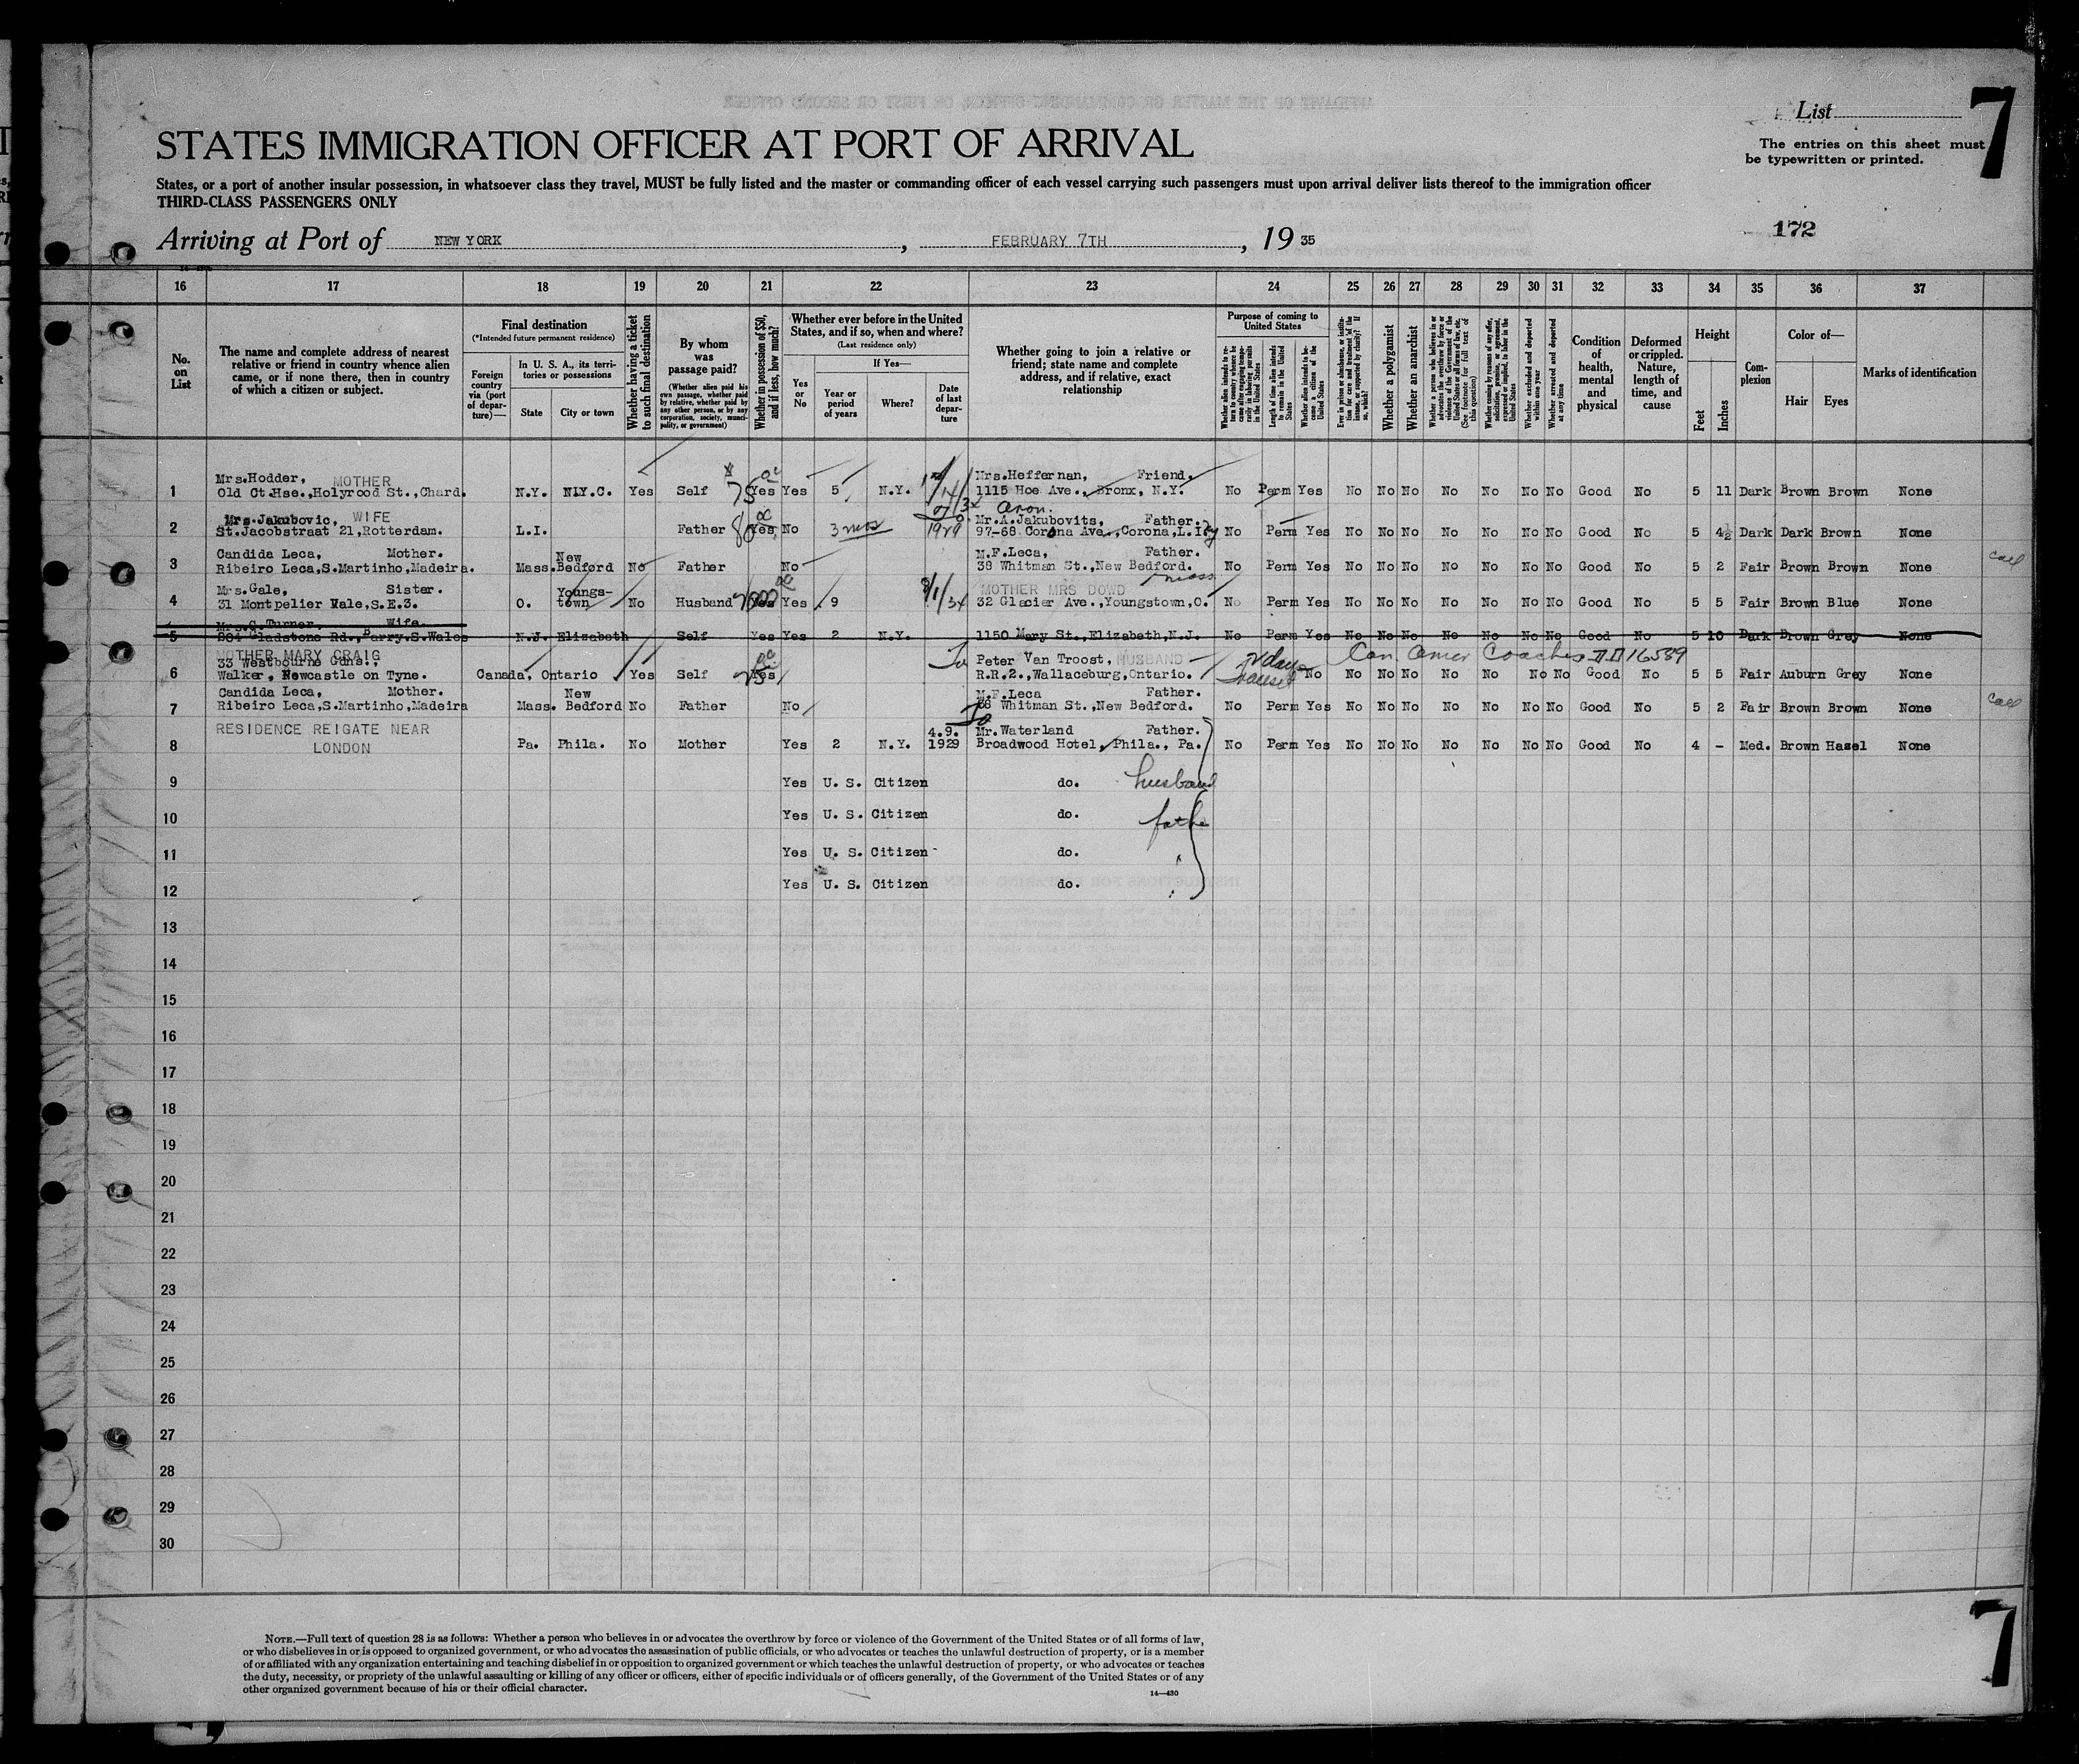 List 7
The entries on this sheet must
be typewritten or printed.
STATES IMMIGRATION OFFICER AT PORT OF ARRIVAL
States, or a port of another insular possession, in whatsoever class they travel, MUST be fully listed and the master or commanding officer of each vessel carrying such passengers must upon arrival deliver lists thereof to the immigration officer
THIRD-CLASS PASSENGERS ONLY
172
Arriving at Port of NEW YORK, FEBRUARY 7TH, 19 35
16 17 18 19 20 21 22 23 24 25 26 27 28 29 30 31 32 33 34 35 36 37
No. on List
The name and complete address of nearest
relative or friend in country whence alien
came, or if none there, then in country
of which a citizen or subject.
Final destination
(*Intended future permanent residence)
Foreign country via (port of departure)—
In U. S. A., its territories or possessions
State
City or town
Whether having a ticket to such final destination
By whom was passage paid?
(Whether alien paid his own passage, whether paid by relative, whether paid by any other person, or by any corporation, society, municipality, or government)
Whether in possession of $50, and if less, how much?
Whether ever before in the United States, and if so, when and where?
(Last residence only)
Yes or No
If Yes—
Year or period of years
Where?
Date of last departure
Whether going to join a relative or
friend; state name and complete
address, and if relative, exact
relationship
Purpose of coming to United States
Whether alien intends to return to country whence he came after engaging temporarily in laboring pursuits in the United States
Length of time alien intends to remain in the United States
Whether alien intends to become a citizen of the United States
Ever in prison or almshouse, or institution for care and treatment of the insane, or supported by charity? If so, which?
Whether a polygamist
Whether an anarchist
Whether a person who believes in or advocates the overthrow by force or violence of the Government of the United States or all forms of law, etc. (See footnote for full text of this question)
Whether coming by reasons of any offer, solicitation, promise, or agreement, expressed or implied, to labor in the United States
Whether excluded and deported within one year
Whether arrested and deported at any time
Condition of health, mental and physical
Deformed or crippled. Nature, length of time, and cause
Height
Feet
Inches
Complexion
Color of—
Hair
Eyes
Marks of identification
Mrs.Hodder, MOTHER Mrs.Heffernan, Friend.
1 Old Ct.Hse.,Holyrood St.,Chard. N.Y. N.Y.C. Yes Self 75 Yes Yes 5 N.Y. 1115 Hoe Ave., Bronx, N.Y. No Perm Yes No No No No No No No Good No 5 11 Dark Brown Brown None
Aron.
Mrs.Jakubovic, WIFE Mr.A.Jakubovits, Father.
2 St.Jacobstraat 21,Rotterdam. L.I. Father 80 Yes No 3 mos 1929 97-68 Corona Ave.,Corona,L.I. No Perm Yes No No No No No No No Good No 5 4½ Dark Dark Brown None
Candida Leca, Mother. New M.F.Leca, Father.
3 Ribeiro Leca,S.Martinho,Madeira. Mass. Bedford No Father No 38 Whitman St.,New Bedford. No Perm Yes No No No No No No No Good No 5 2 Fair Brown Brown None
Mass
Mrs.Gale, Sister. Youngs- 8/1/34 MOTHER MRS DOWD
4 31 Montpelier Vale,S.E.3. O. town No Husband Yes Yes 9 32 Glacier Ave.,Youngstown,O. No Perm Yes No No No No No No No Good No 5 5 Fair Brown Blue None
Mrs.G.Turner. Wife.
5 Gladstone Rd.,Barry.S.Wales N.J. Elizabeth Self Yes Yes 2 N.Y. 1150 Mary St.,Elizabeth,N.J. No Perm Yes No No No No No No No Good No 5 10 Dark Brown Grey None
MOTHER MARY CRAIG
33 Westbourne Gdns., Peter Van Troost, HUSBAND 2 days Can. Amer Coaches 16589
6 Walker, Newcastle on Tyne. Canada, Ontario Yes Self 25 Yes R.R.2.,Wallaceburg,Ontario. transit No No No No No No No No Good No 5 5 Fair Auburn Grey None
Candida Leca, Mother. New M.F.Leca Father.
7 Ribeiro Leca,S.Martinho,Madeira Mass. Bedford No Father No Whitman St.,New Bedford. No Perm Yes No No No No No No No Good No 5 2 Fair Brown Brown None
RESIDENCE REIGATE NEAR 4.9. Mr.Waterland Father.
8 LONDON Pa. Phila. No Mother Yes 2 N.Y. 1929 Broadwood Hotel, Phila., Pa. No Perm Yes No No No No No No No Good No 4 - Med. Brown Hazel None
9 Yes U. S. Citizen do. husband
10 Yes U. S. Citizen do. father
11 Yes U. S. Citizen do.
12 Yes U. S. Citizen do.
13
14
15
16
17
18
19
20
21
22
23
24
25
26
27
28
29
30
NOTE.—Full text of question 28 is as follows: Whether a person who believes in or advocates the overthrow by force or violence of the Government of the United States or of all forms of law,
or who disbelieves in or is opposed to organized government, or who advocates the assassination of public officials, or who advocates or teaches the unlawful destruction of property, or is a member
of or affiliated with any organization entertaining and teaching disbelief in or opposition to organized government or which teaches the unlawful destruction of property, or who advocates or teaches
the duty, necessity, or propriety of the unlawful assaulting or killing of any officer or officers, either of specific individuals or of officers generally, of the Government of the United States or of any
other organized government because of his or their official character.
14—430
7